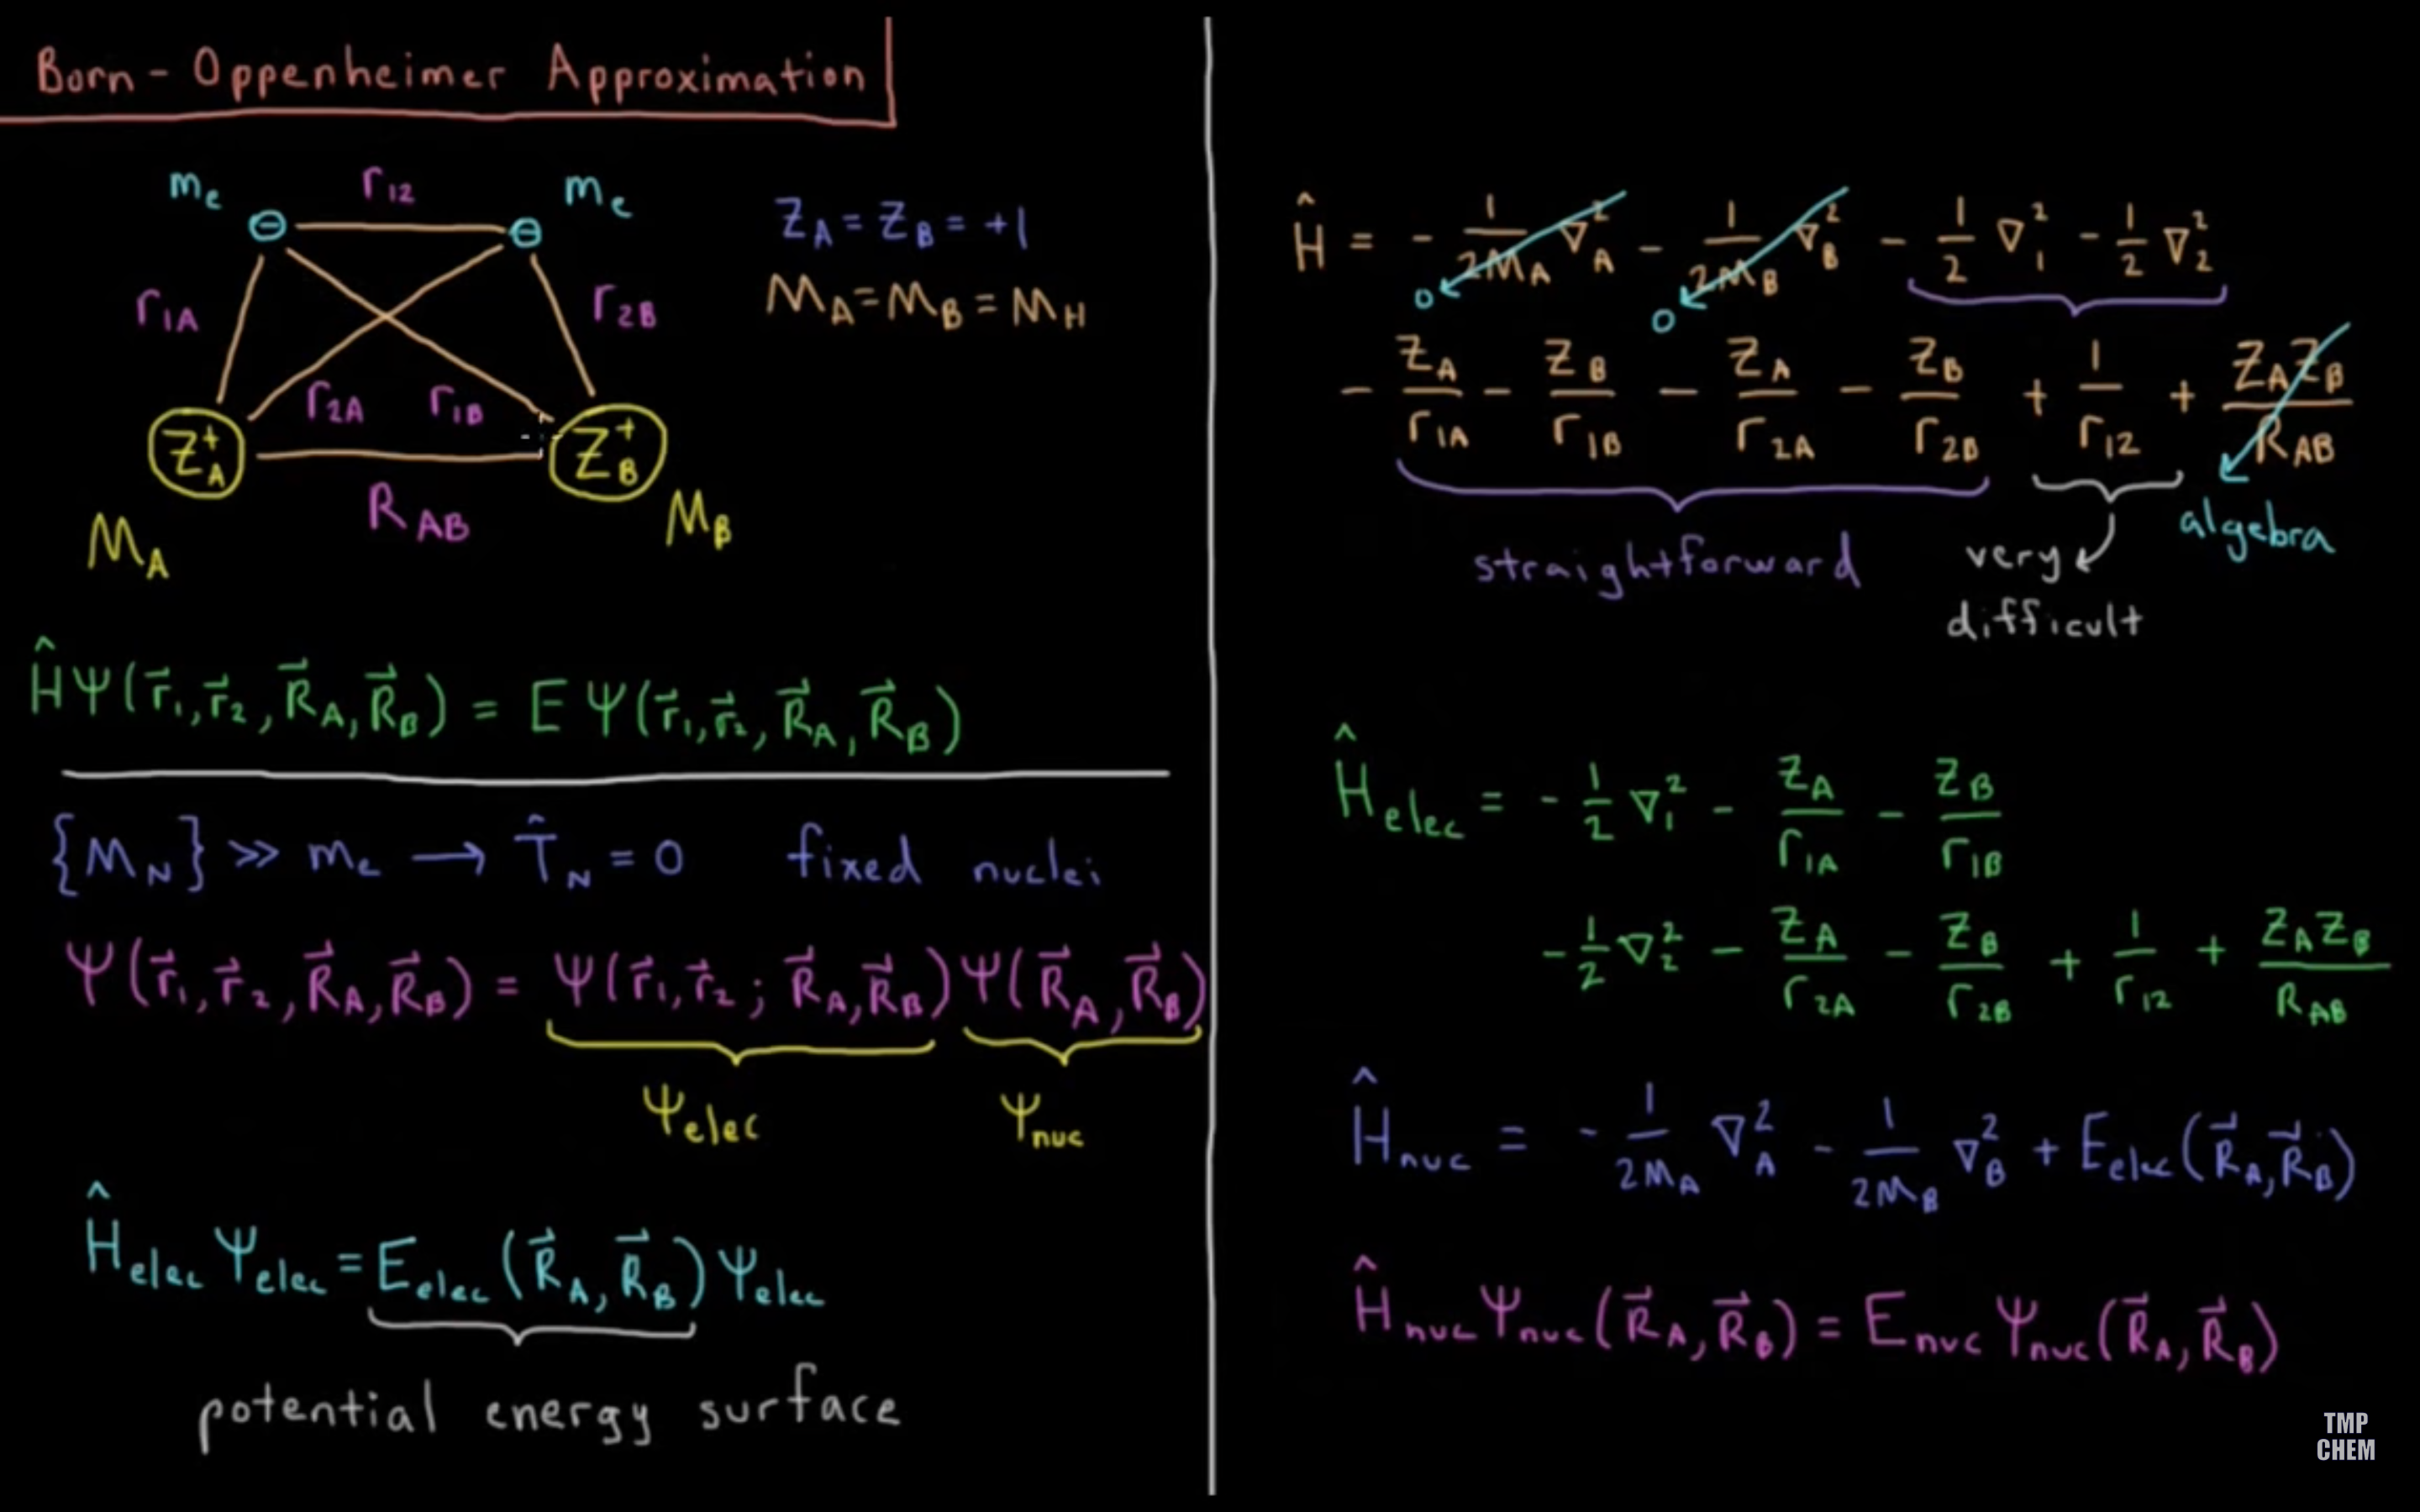 Born-Oppenheimer Approximation
mₑ r₁₂ mₑ
⊖ ⊖ Z_A = Z_B = +1
r₁A r₂B M_A = M_B = M_H
r₂A r₁B
Z_A⁺ Z_B⁺
M_A R_AB M_B
ĤΨ(r⃗₁, r⃗₂, R⃗_A, R⃗_B) = EΨ(r⃗₁, r⃗₂, R⃗_A, R⃗_B)
{M_N} ≫ mₑ → T̂_N = 0 fixed nuclei
Ψ(r⃗₁, r⃗₂, R⃗_A, R⃗_B) = Ψ(r⃗₁, r⃗₂; R⃗_A, R⃗_B) Ψ(R⃗_A, R⃗_B)
Ψ_elec Ψ_nuc
Ĥ_elec Ψ_elec = E_elec(R⃗_A, R⃗_B) Ψ_elec
potential energy surface
Ĥ = - 1/2M_A ∇²_A - 1/2M_B ∇²_B - 1/2 ∇²₁ - 1/2 ∇²₂
0 0
- Z_A/r₁A - Z_B/r₁B - Z_A/r₂A - Z_B/r₂B + 1/r₁₂ + Z_A Z_B/R_AB
straightforward very difficult algebra
Ĥ_elec = - 1/2 ∇₁² - Z_A/r₁A - Z_B/r₁B
- 1/2 ∇₂² - Z_A/r₂A - Z_B/r₂B + 1/r₁₂ + Z_A Z_B/R_AB
Ĥ_nuc = - 1/2M_A ∇²_A - 1/2M_B ∇²_B + E_elec(R⃗_A, R⃗_B)
Ĥ_nuc Ψ_nuc(R⃗_A, R⃗_B) = E_nuc Ψ_nuc(R⃗_A, R⃗_B)
TMP
CHEM